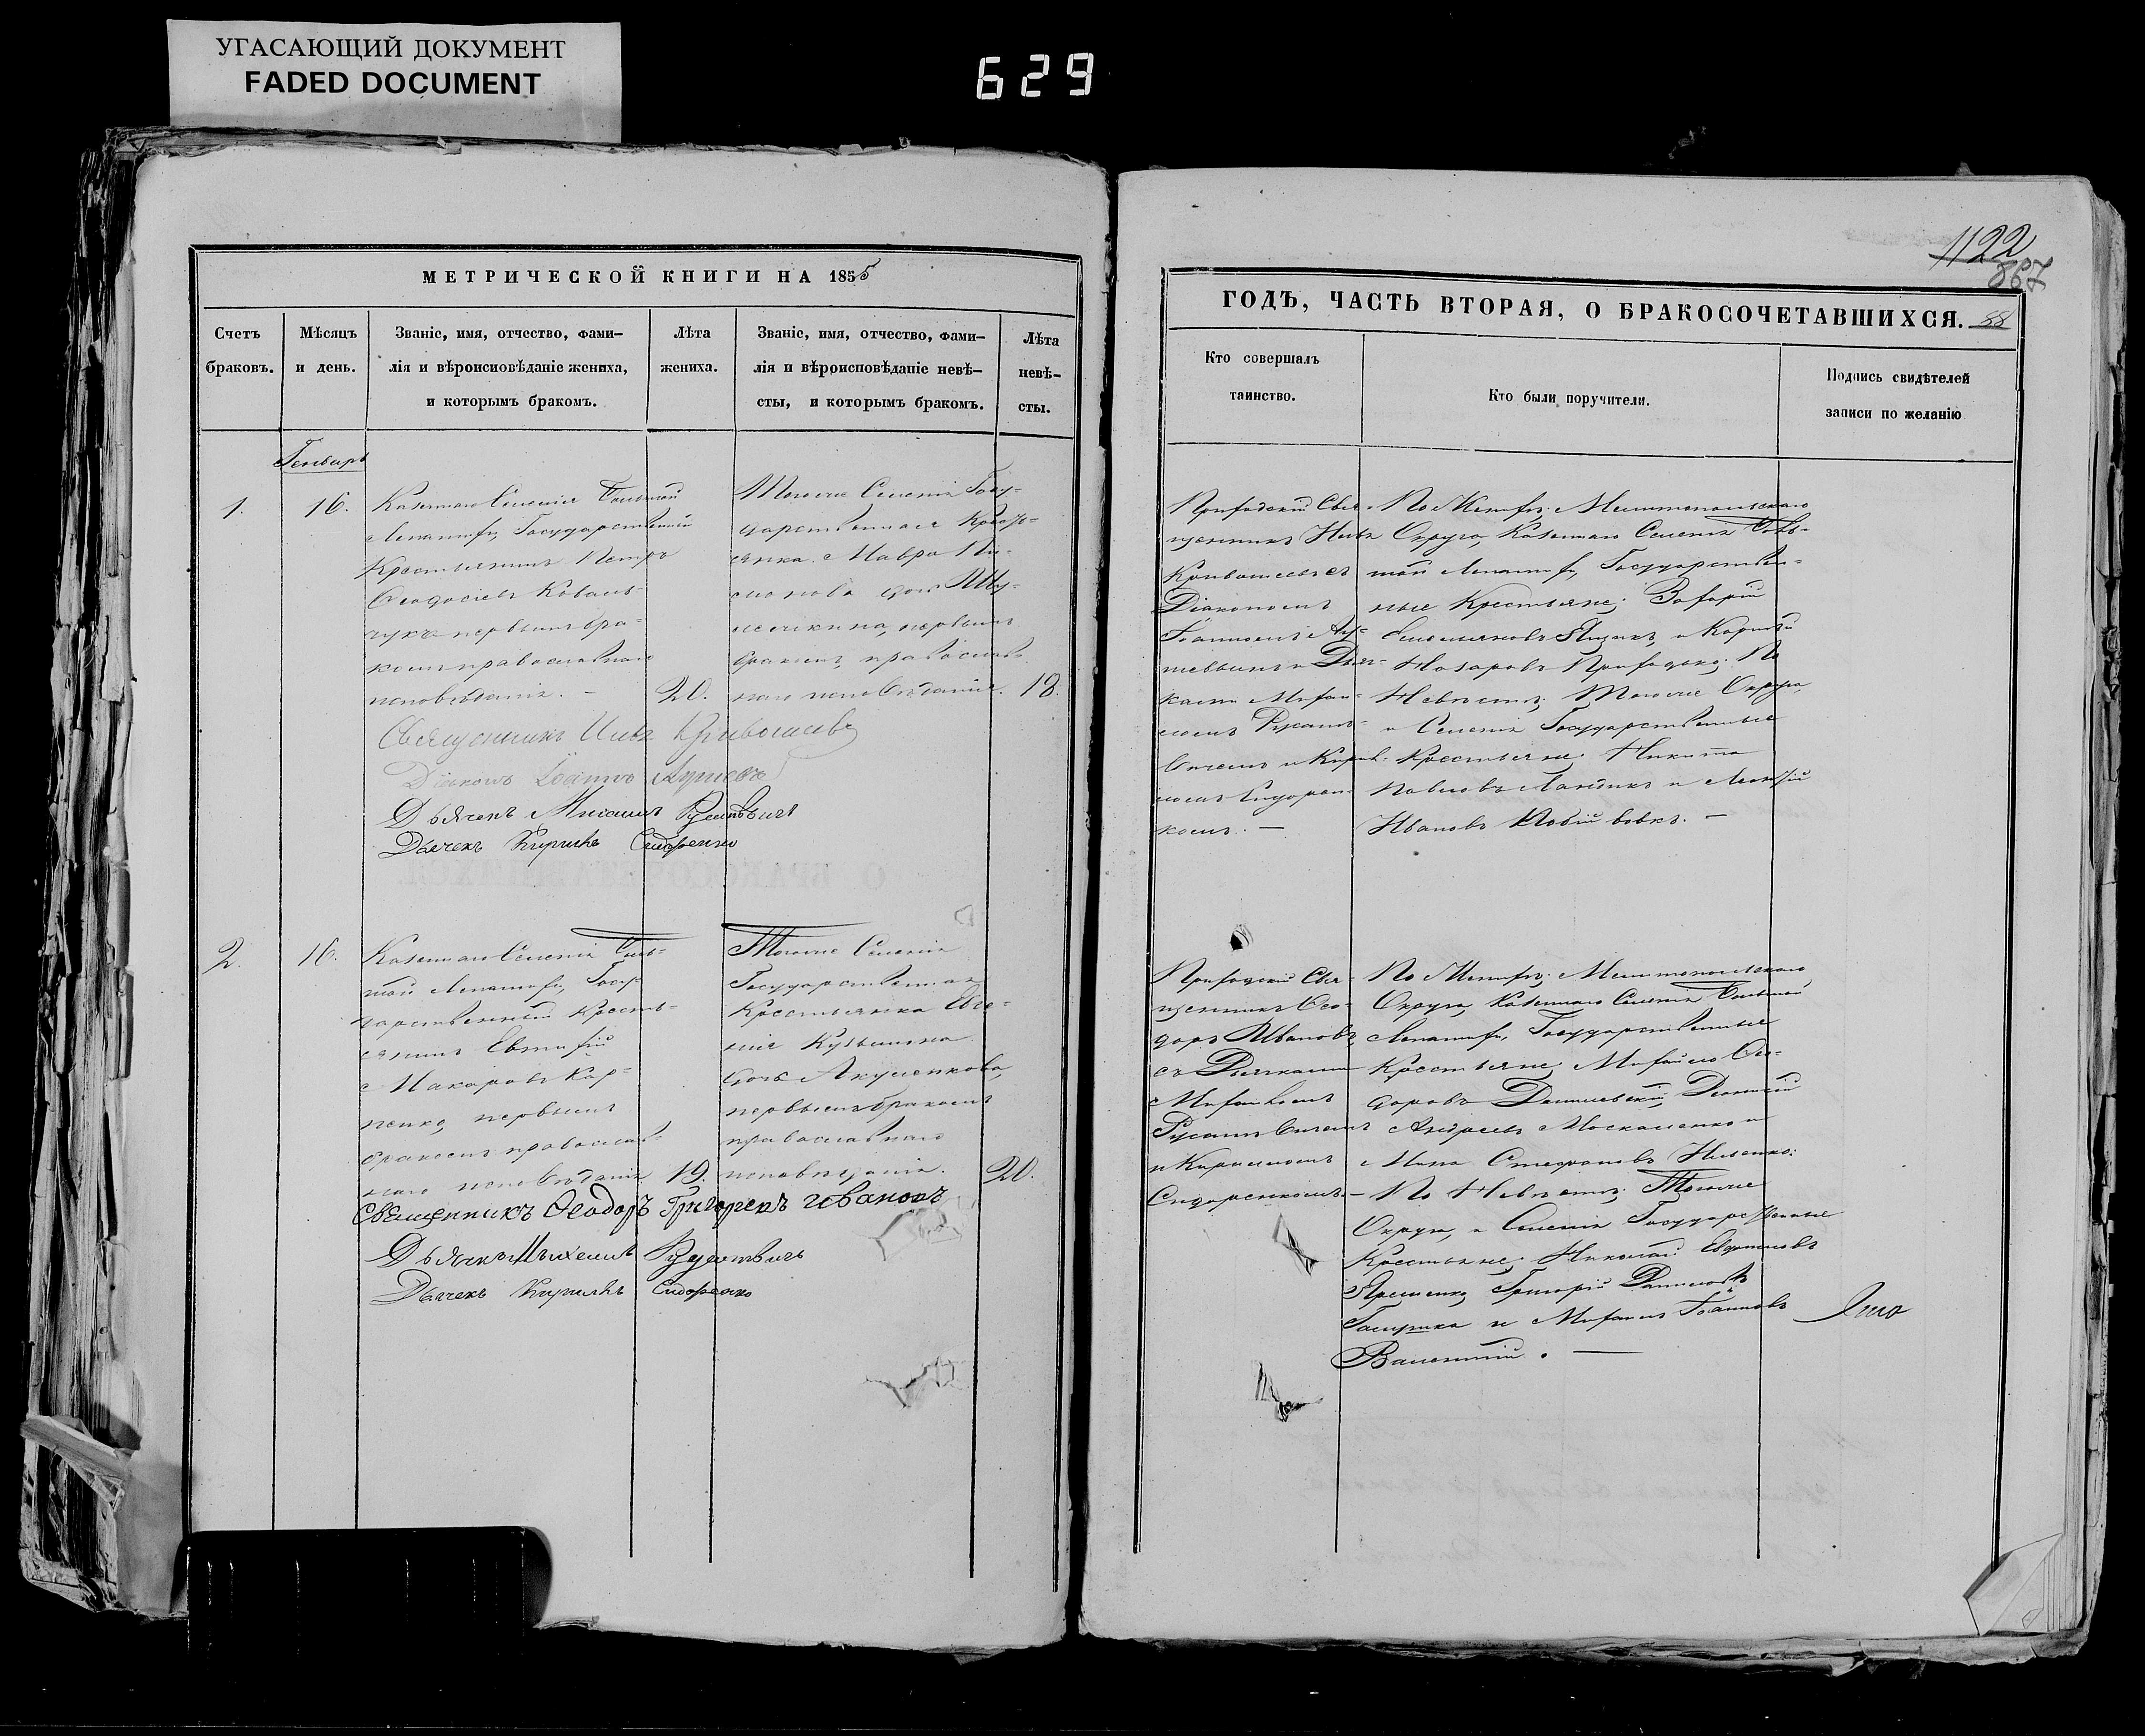 УГАСАЮЩИЙ ДОКУМЕНТ
FADED DOCUMENT
629
МЕТРИЧЕСКОЙ КНИГИ НА 1855
Счетъ
браковъ.
Мѣсяцъ
и день.
Званіе, имя, отчество, фами-
лія и вѣроисповѣданіе жениха,
и которымъ бракомъ.
Лѣта
жениха.
Званіе, имя, отчество, фами-
лія и вѣроисповѣданіе невѣ-
сты, и которымъ бракомъ.
Лѣта
невѣ-
сты.
Генварь
1.
16.
Казеннаго Селенія Большой
Лепатихи, Государственный
Крестьянинъ Петръ
Ѳеодосіевъ Коваль-
чукъ первымъ бра-
комъ православнаго
исповѣданія. –
20.
Тогоже Селенія Госу-
дарственная Кресть-
янка Мавра
дочь
первымъ
бракомъ, православ-
наго исповѣданія.
18.
Священникъ Илья Кривошеевъ
Діаконъ Іоаннъ
Дьячекъ Михаилъ
Дьячекъ Кирилъ Сидоренко
2.
16.
Казеннаго Селенія Боль-
шой Лепатихи, Госу-
дарственный Кресть-
янинъ Евтихій
Макаровъ Кар-
пенко, первымъ
бракомъ православ-
наго исповѣданія
19.
Тогоже Селенія
Государственная
Крестьянка Евге-
нія Кузьмина
дочь Акуленкова,
первымъ бракомъ
православнаго
исповѣданія.
20.
Священникъ Ѳеодоръ Григорьевъ Ивановъ
Дьячекъ Михаилъ
Дьячекъ Кирилъ Сидоренко
1122
867
ГОДЪ, ЧАСТЬ ВТОРАЯ, О БРАКОСОЧЕТАВШИХСЯ. 88
Кто совершалъ
таинство.
Кто были поручители.
Подпись свидѣтелей
записи по желанію
Приходскій Свя-
щенникъ Илья
Кривошеевъ съ
Діакономъ
Іоанномъ
и Дьяч-
ками Михаи-
ломъ
и Кирил-
ломъ Сидорен-
комъ. –
По Женихѣ; Мелитопольскаго
Округа, Казеннаго Селенія Боль-
шой Лепатихи, Государствен-
ные Крестьяне; Захарій
Емельяновъ и Корнилій
Назаровъ Приходько; По
Невѣстѣ; Тогоже Округа,
и Селенія Государственные
Крестьяне; Никита
Павловъ и
Ивановъ –
Приходскій Свя-
щенникъ Ѳео-
доръ Ивановъ,
съ Дьячками
Михаиломъ
и Кирилломъ
Сидоренкомъ. –
По Женихѣ; Мелитопольскаго
Округа, Казеннаго Селенія Большой
Лепатихи, Государственные
Крестьяне; Михайло Ѳео-
доровъ Данилевскій, Леонтій
Андреевъ Москаленко и
Мина Стефановъ
По Невѣстѣ; Тогоже
Округа, и Селенія Государственные
Крестьяне; Николай
Яременко, Григорій Даниловъ
и Михаилъ Іоанновъ